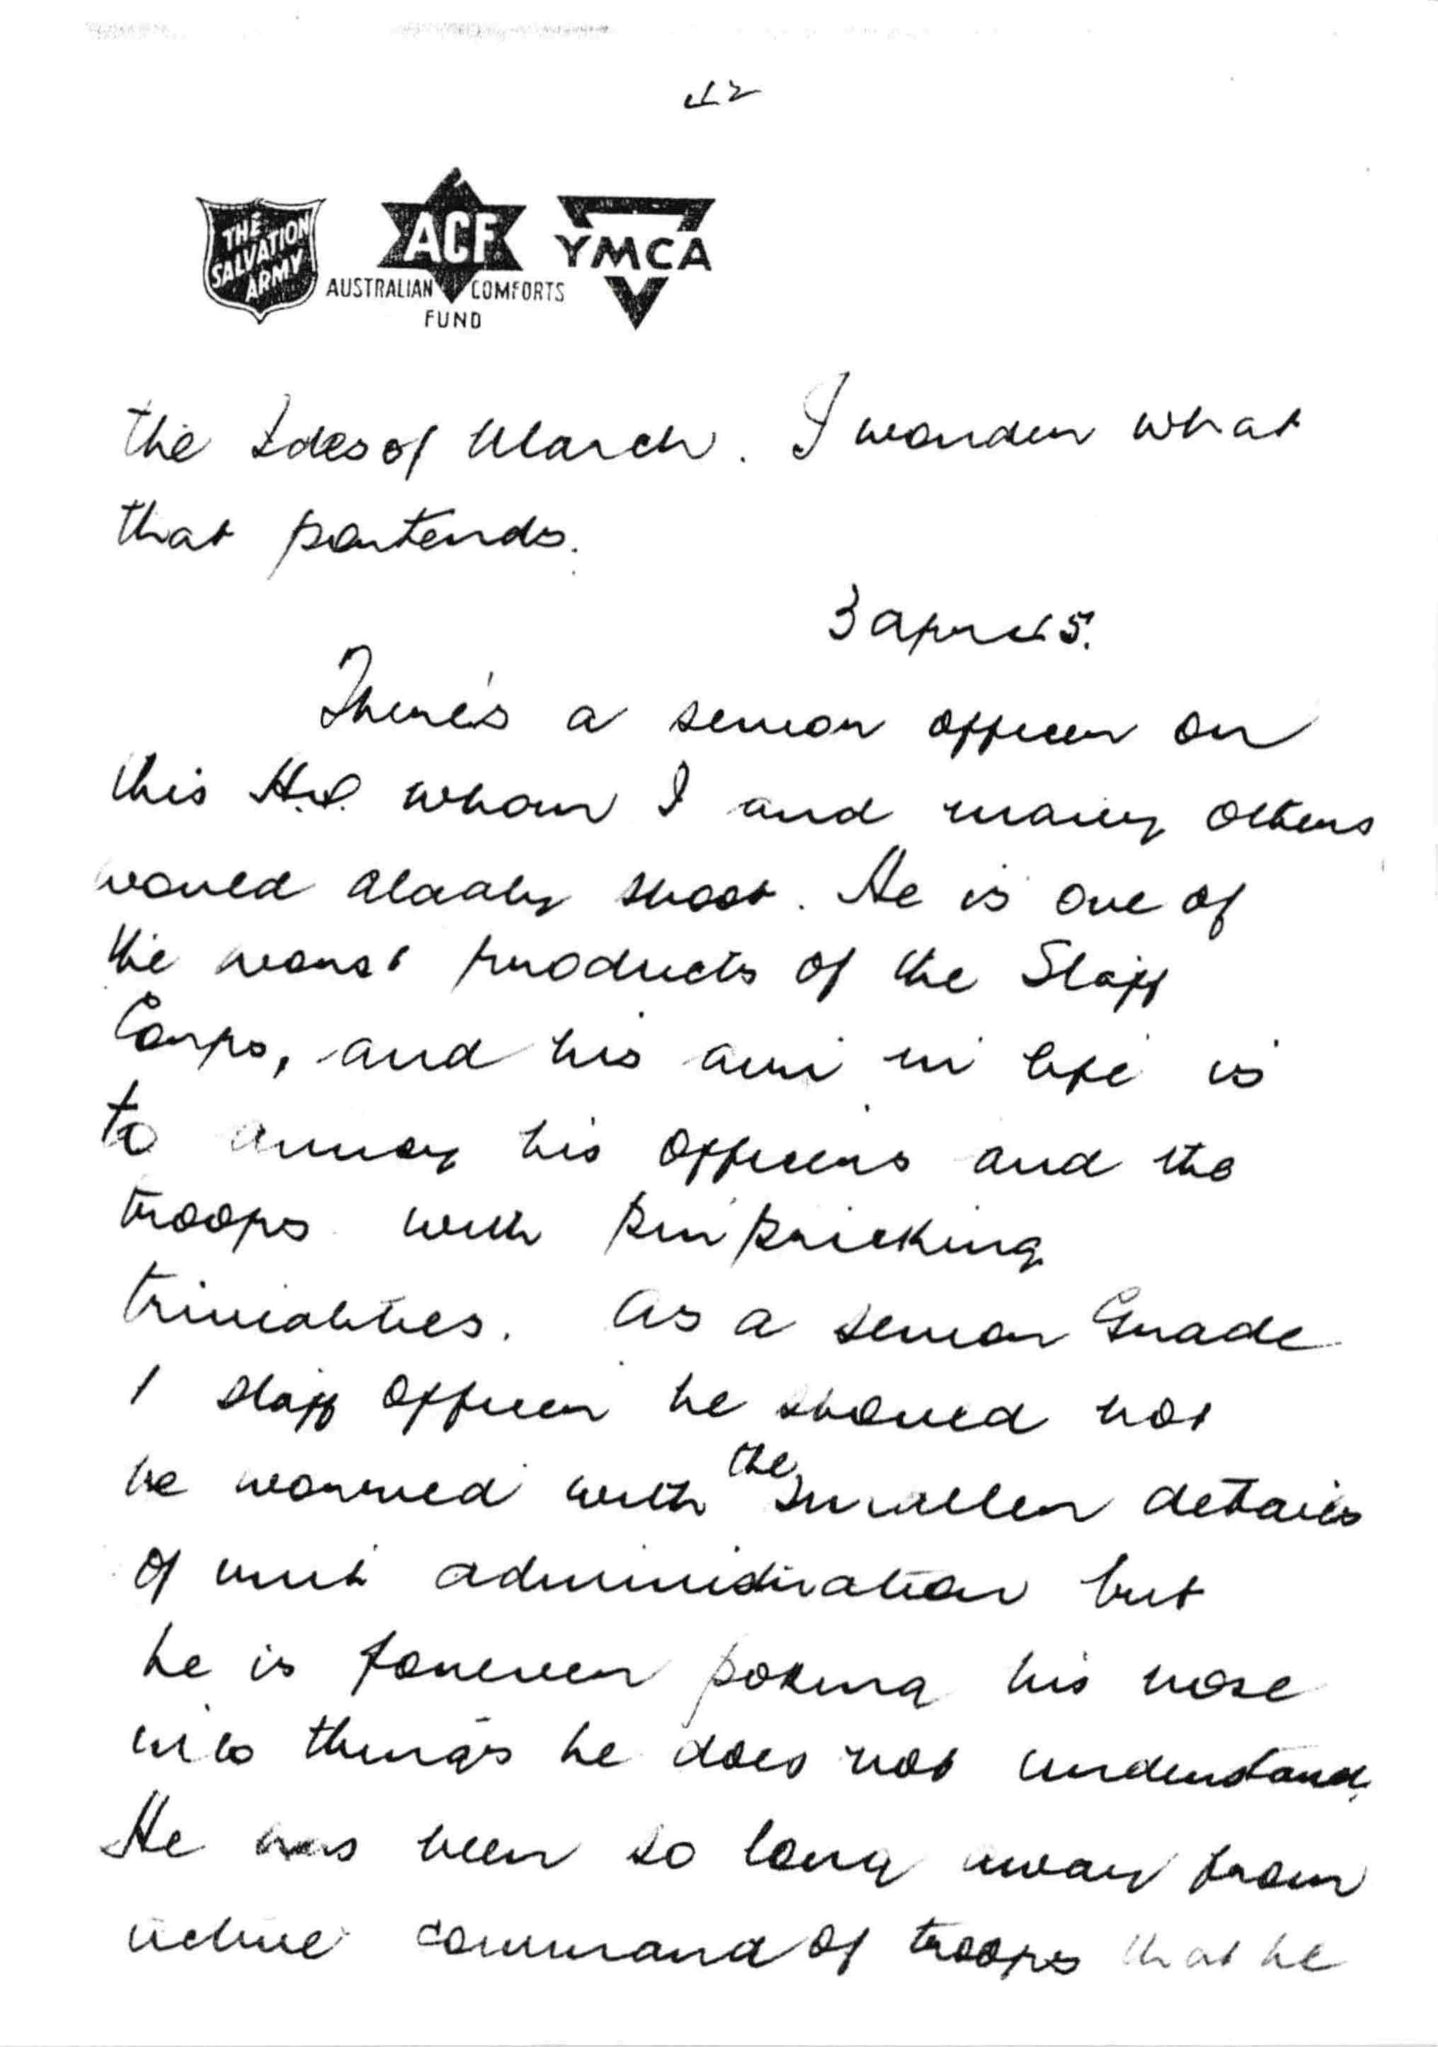 42
THE
SALVATION
ARMY
ACF
AUSTRALIAN COMFORTS
FUND
YMCA
the Ides of March. I wonder what
that portends.
3 April 45.
There's a senior officer on
this H.Q. whom I and many others
would gladly shoot. He is one of
the worst products of the Staff
Corps, and his aim in life is
to annoy his officers and the
troops with pin pricking
trivialities. As a senior Grade
1 staff officer he should not
be worried with the smaller details
of unit administration but
he is forever poking his nose
into things he does not understand.
He has been so long away from
active command of troops that he